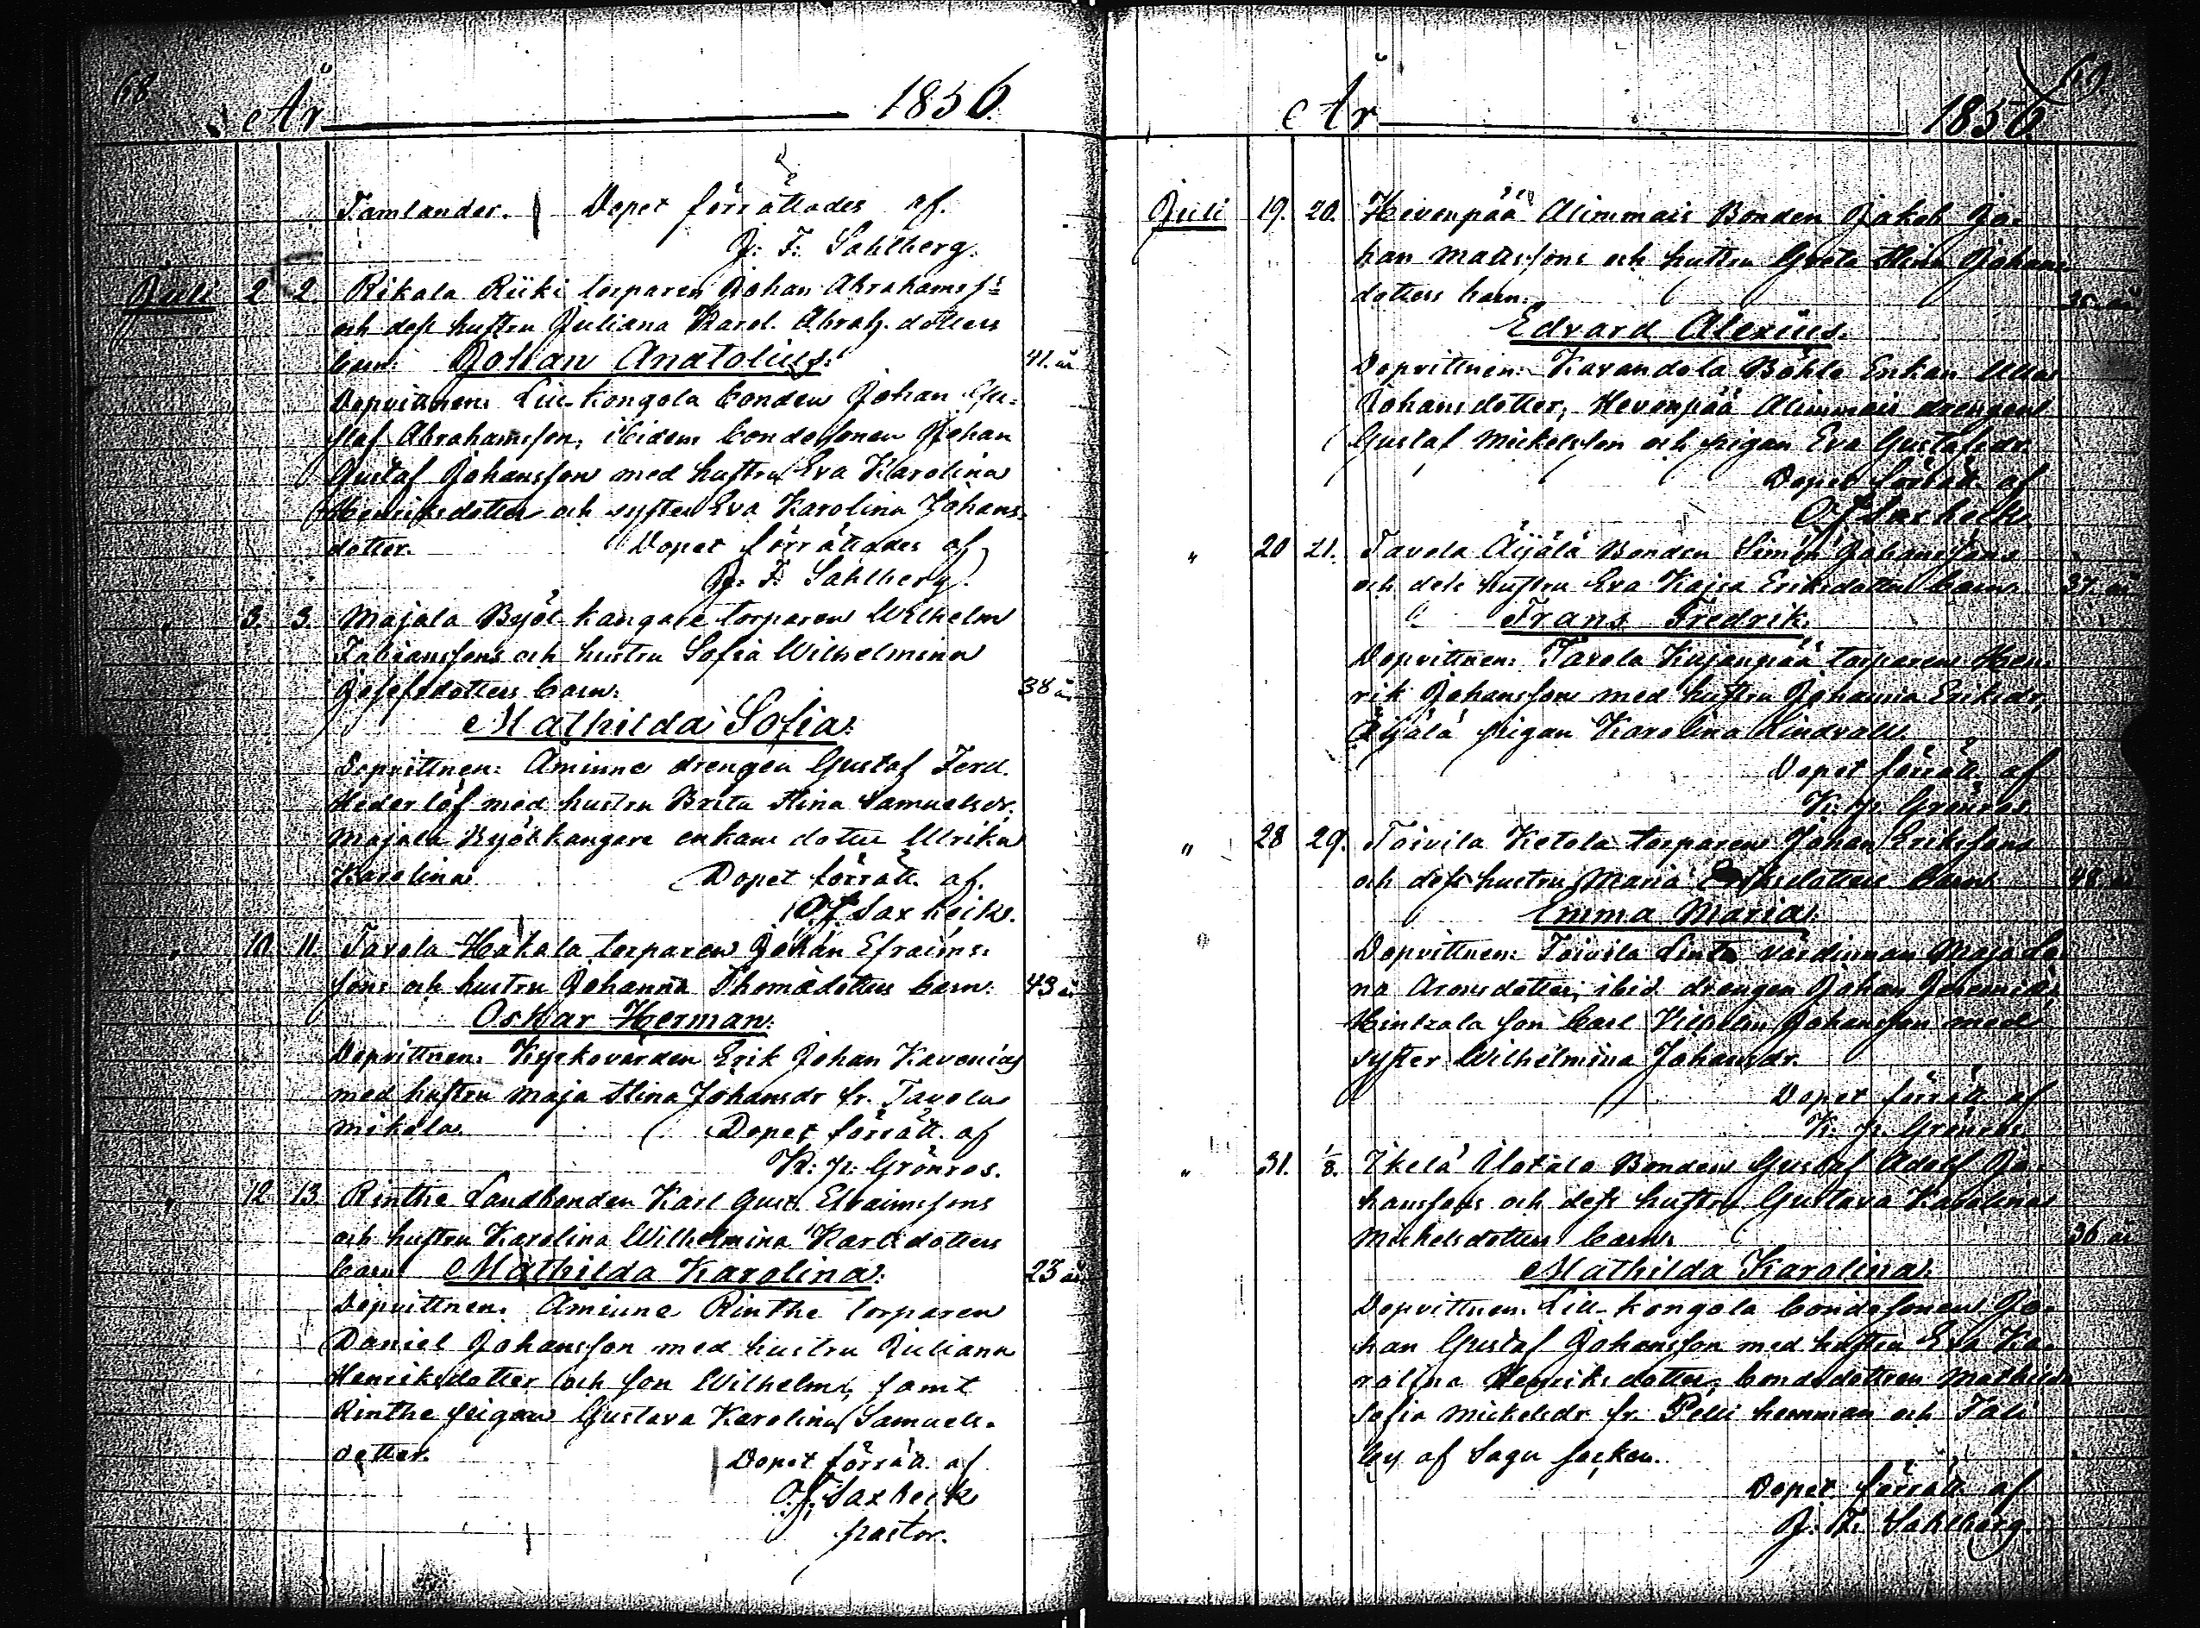 68.
År 1856.
Tamlander. Dopet förrättades af.
J: F: Sahlberg.
Juli 2 2 Rikala Riiki torparen Johan Abrahamss:
och dess hustru Juliana Karol. Abrah. dotters
barn: Johan Anatolius: 41. år
Dopvittnen: Lill-Kongola bonden Johan Gu-
staf Abrahamsson, ibidem bondesonen Johan
Gustaf Johansson med hustru Eva Karolina
Henriksdotter och syster Eva Karolina Johans-
dotter. Dopet förrättades af
J: F: Sahlberg.
" 3. 3. Majala torparen Wilhelm
Fabianssons och hustru Sofia Wilhelmina
Josefsdotters barn: 38 år
Mathilda Sofia:
Dopvittnen: Aminne drengen Gustaf Ferd.
Hederlöf med hustru Brita Stina Samuelsdr.
Majala enkans dotter Ulrika
Karolina. Dopet förrätt. af.
O.J. Saxbeck.
" 10. 11. Tavola Hakala torparen Johan Efraims-
sons och hustru Johanna Thomædotters barn: 43 år
Oskar Herman:
Dopvittnen: Kyrkovärden Erik Johan Kavenius
med hustru Maja Stina Johansdr fr. Tavola
Mikola. Dopet förrätt. af
K: p: Grönros.
" 12 13. Rinthe Landbonden Karl Gust. Efraimssons
och hustru Karolina Wilhelmina Karlsdotters
barn Mathilda Karolina: 23 år
Dopvittnen: Aminne Rinthe torparen
Daniel Johansson med hustru Juliana
Henriksdotter och son Wilhelm, samt
Rinthe pigan Gustava Karolina Samuels-
dotter. Dopet förrätt. af
O.J. Saxbeck
pastor.
69.
År 1856
Juli 19. 20. Hevonpää Alimmais Bonden Jakob Jo-
han Mattssons och hustru Greta Stina Johans-
dotters barn: 35 år
Edvard Alexius.
Dopvittnen: Karandola Böhle Enkan Ulla
Johansdotter, Hevonpää Alimmais drengen
Gustaf Mickelsson och pigan Eva Gustafsdr
Dopet förrätt. af
O.J. Saxbeck.
" 20 21. Tavola Äijälä Bonden Simon Johanssons
och dess hustru Eva Kajsa Eriksdotters barn: 37. år
Frans Fredrik.
Dopvittnen: Tavola Kujanpää torparen Hen-
rik Johansson med hustru Johanna Eriksdr,
Äijälä pigan Karolina Lindvall.
Dopet förrätt. af
K: p: Grönros.
" 28 29. Toivila Ketola torparen Johan Erikssons
och dess hustru Maria Eriksdotters barn 48 år
Emma Maria:
Dopvittnen: Toivila värdinnan Maja Le-
na Aronsdotter, ibid. drengen Johan Jeremias,
Hintzala son Carl Vilhelm Johansson med
syster Wilhelmina Johansdr.
Dopet förrätt. af
K: p: Grönros.
" 31. 1/8. Ikelä Ylotalo Bonden Gustaf Adolf Jo-
hanssons och dess hustru Gustava Karolina
Mickelsdotters barn: 36 år
Mathilda Karolina:
Dopvittnen: Lill-Kongola bondesonen Jo-
han Gustaf Johansson med hustru Eva Ka-
rolina Henriksdotter, bondedottren Mathilda
Sofia Mickelsdr fr. Pelli hemman och Tali
by af Sagu socken.
Dopet förrätt. af
J: F: Sahlberg.